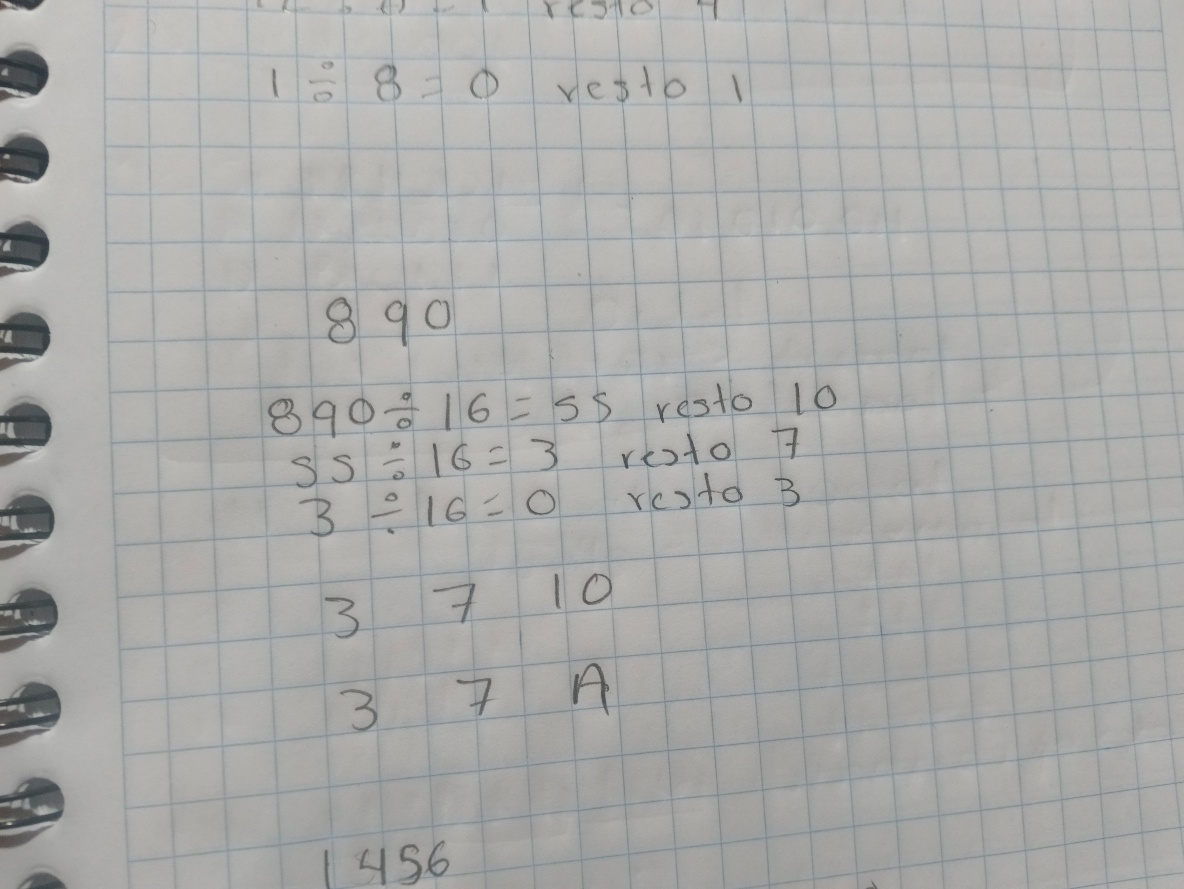 resto
1 ÷ 8 = 0 resto 1
890
890 ÷ 16 = 55 resto 10
55 ÷ 16 = 3 resto 7
3 ÷ 16 = 0 resto 3
3 7 10
3 7 A
1456